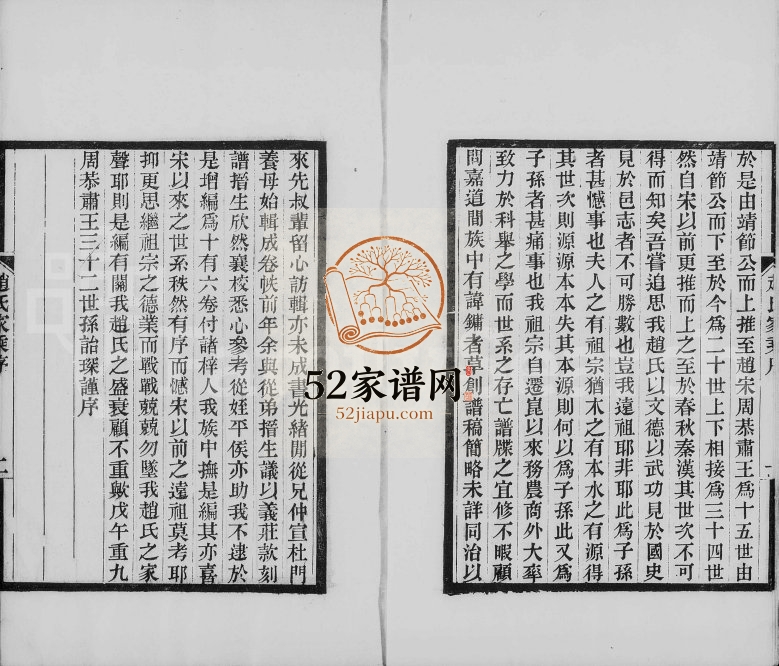 於是由靖節公而上推至趙宋周恭肅王爲十五世由
靖節公而下至於今爲二十世上下相接爲三十四世
然自宋以前更推而上之至於春秋秦漢其世次不可
得而知矣吾嘗追思我趙氏以文德以武功見於國史
見於邑志者不可勝數也豈我遠祖耶非耶此爲子孫
者甚憾事也夫人之有祖宗猶木之有本水之有源得
其世次則源源本本失其本源則何以爲子孫此又爲
子孫者甚痛事也我祖宗自遷崑以來務農商外大率
致力於科舉之學而世系之存亡譜牒之宜修不暇顧
問嘉道間族中有諱鏞者草創譜稿簡略未詳同治以
趙氏家乘序
來先叔輩留心訪輯亦未成書光緒閒從兄仲宣杜門
養母始輯成卷帙前年余與從弟搢生議以義莊款刻
譜搢生欣然襄校悉心參考從姪平侯亦助我不逮於
是增編爲十有六卷付諸梓人我族中撫是編其亦喜
宋以來之世系秩然有序而憾宋以前之遠祖莫考耶
抑更思繼祖宗之德業而戰戰兢兢勿墜我趙氏之家
聲耶則是編有關我趙氏之盛衰顧不重歟戊午重九
周恭肅王三十二世孫詒琛謹序
趙氏家乘序
52家谱网
52jiapu.com